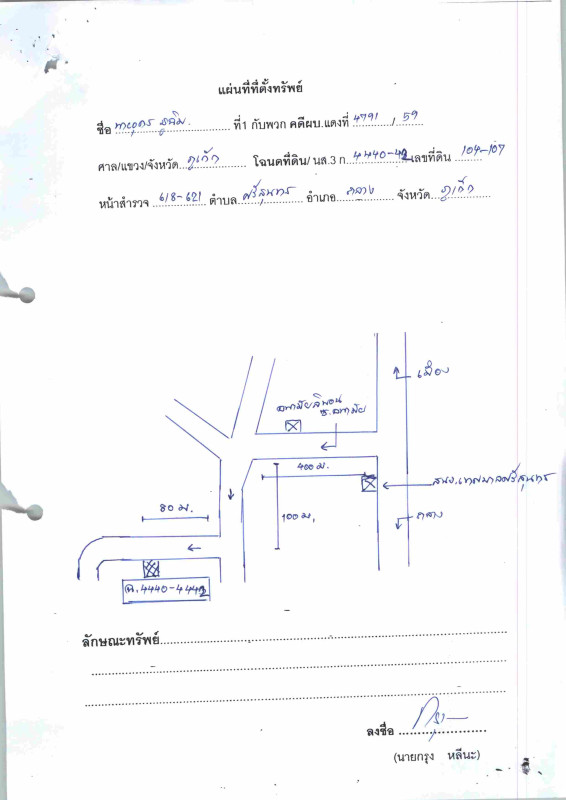 แผนที่ที่ตั้งทรัพย์
ชื่อ ................ ที่1 กับพวก คดีผบ.แดงที่ 4791 / 59
ศาล/แขวง/จังหวัด ภูเก็ต โฉนดที่ดิน/ นส.3 ก. 4440-42 เลขที่ดิน 104-107
หน้าสำรวจ 618-621 ตำบล ศรีสุนทร อำเภอ ถลาง จังหวัด ภูเก็ต
เมือง
ซ.
400 ม.
สนง.เทศบาลศรีสุนทร
80 ม.
100 ม.
ถลาง
ฉ.4440-4442
ลักษณะทรัพย์
ลงชื่อ
(นายกรุง หลีนะ)